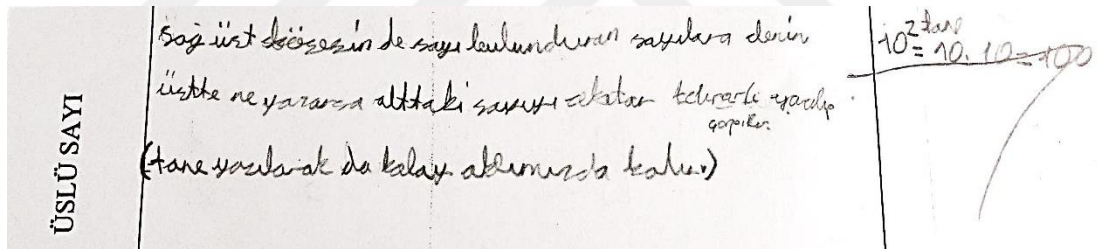 ÜSLÜ SAYI
Sağ üst köşesin de sayı bulunduran sayılara denir
üstte ne yazarsa alttaki sayıyı o kadar tekrarlı yazılıp
çarpılır.
(tane yazılarak da kolay aklımızda kalır.)
10² tane = 10. 10 = 100